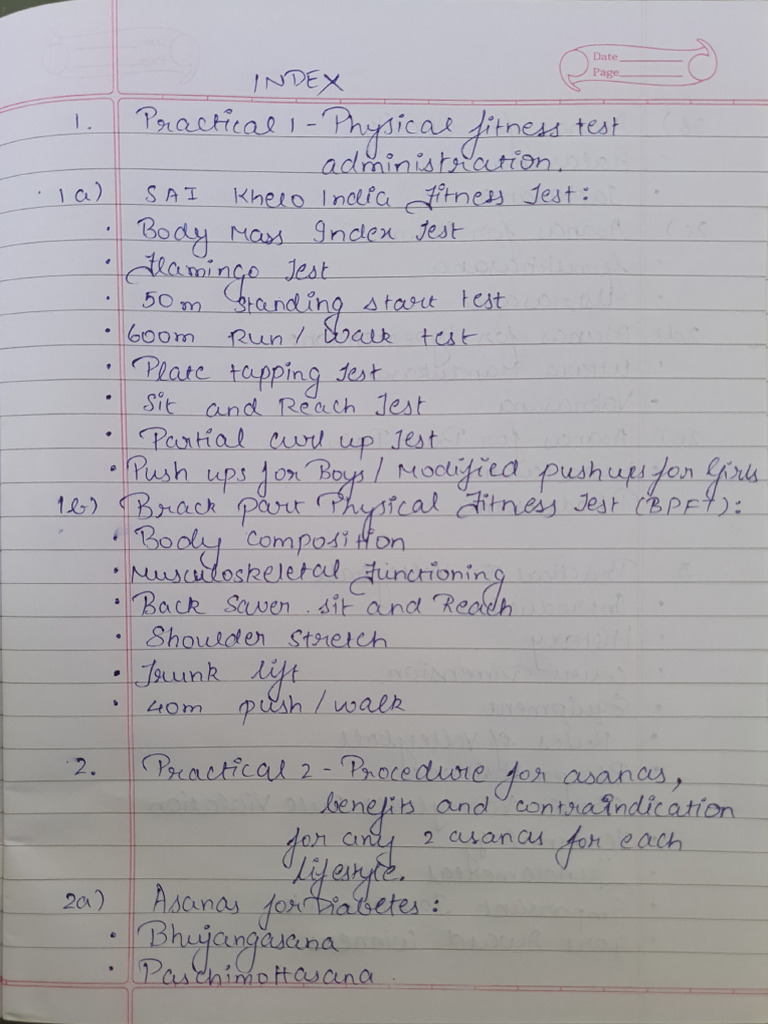 Date
Page
INDEX
1. Practical 1 - Physical fitness test
administration.
1a) SAI Khelo India Fitness Test:
• Body Mass Index Test
• Flamingo Test
• 50m standing start test
• 600m Run / Walk test
• Plate tapping Test
• Sit and Reach Test
• Partial curl up Test
• Push ups for Boys / Modified pushups for Girls
1b) Brack part Physical Fitness Test (BPFT):
• Body composition
• Musculoskeletal Functioning
• Back Saver sit and Reach
• Shoulder stretch
• Trunk lift
• 40m push / walk
2. Practical 2 - Procedure for asanas,
benefits and contraindication
for any 2 asanas for each
lifestyle.
2a) Asanas for Diabetes:
• Bhujangasana
• Paschimottasana.